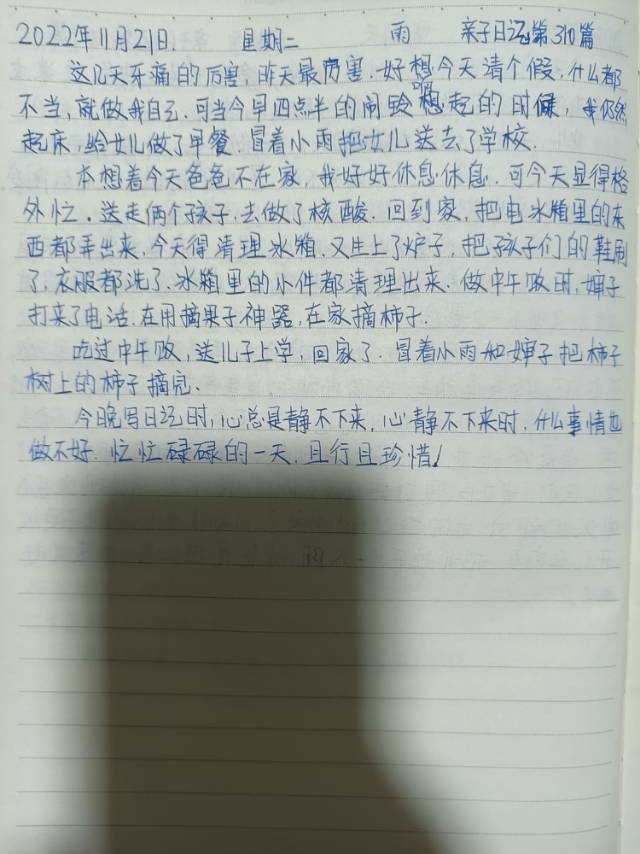 2022年11月21日. 星期二 雨 亲子日记第310篇
这几天牙痛的厉害,昨天最厉害.好想今天请个假,什么都
不当,就做我自己.可当今早四点半的闹铃想起的时候,我仍然
起床,给女儿做了早餐.冒着小雨把女儿送去了学校.
本想着今天爸爸不在家,我好好休息休息.可今天显得格
外忙.送走俩个孩子,去做了核酸.回到家,把电冰箱里的东
西都弄出来,今天得清理冰箱.又生上了炉子,把孩子们的鞋刷
了,衣服都洗了.冰箱里的小件都清理出来.做中午饭时,婶子
打来了电话.在用摘果子神器,在家摘柿子.
吃过中午饭,送儿子上学,回家了.冒着小雨和婶子把柿子
树上的柿子摘完.
今晚写日记时,心总是静不下来,心静不下来时.什么事情也
做不好.忙忙碌碌的一天,且行且珍惜!